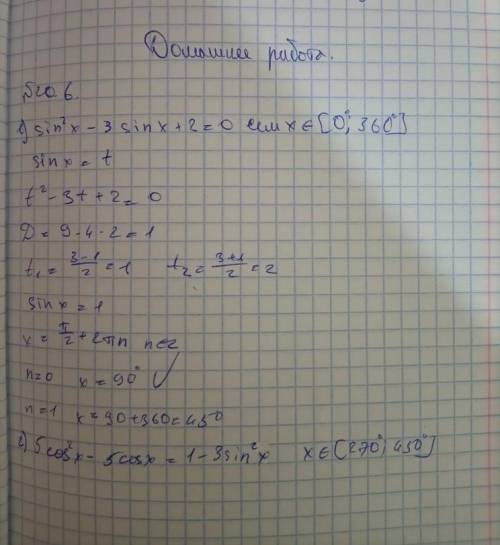 Домашнее работа.
№20.6.
1) sin²x - 3 sinx + 2 = 0 если x ∈ [0°; 360°]
sinx = t
t² - 3t + 2 = 0
D = 9 - 4 · 2 = 1
t₁ = (3-1)/2 = 1 t₂ = (3+1)/2 = 2
sinx = 1
x = π/2 + 2πn n∈z
n=0 x = 90° ✓
n=1 x = 90+360=450
2) 5cos²x - 5cosx = 1 - 3sin²x x ∈ [270°; 450°]